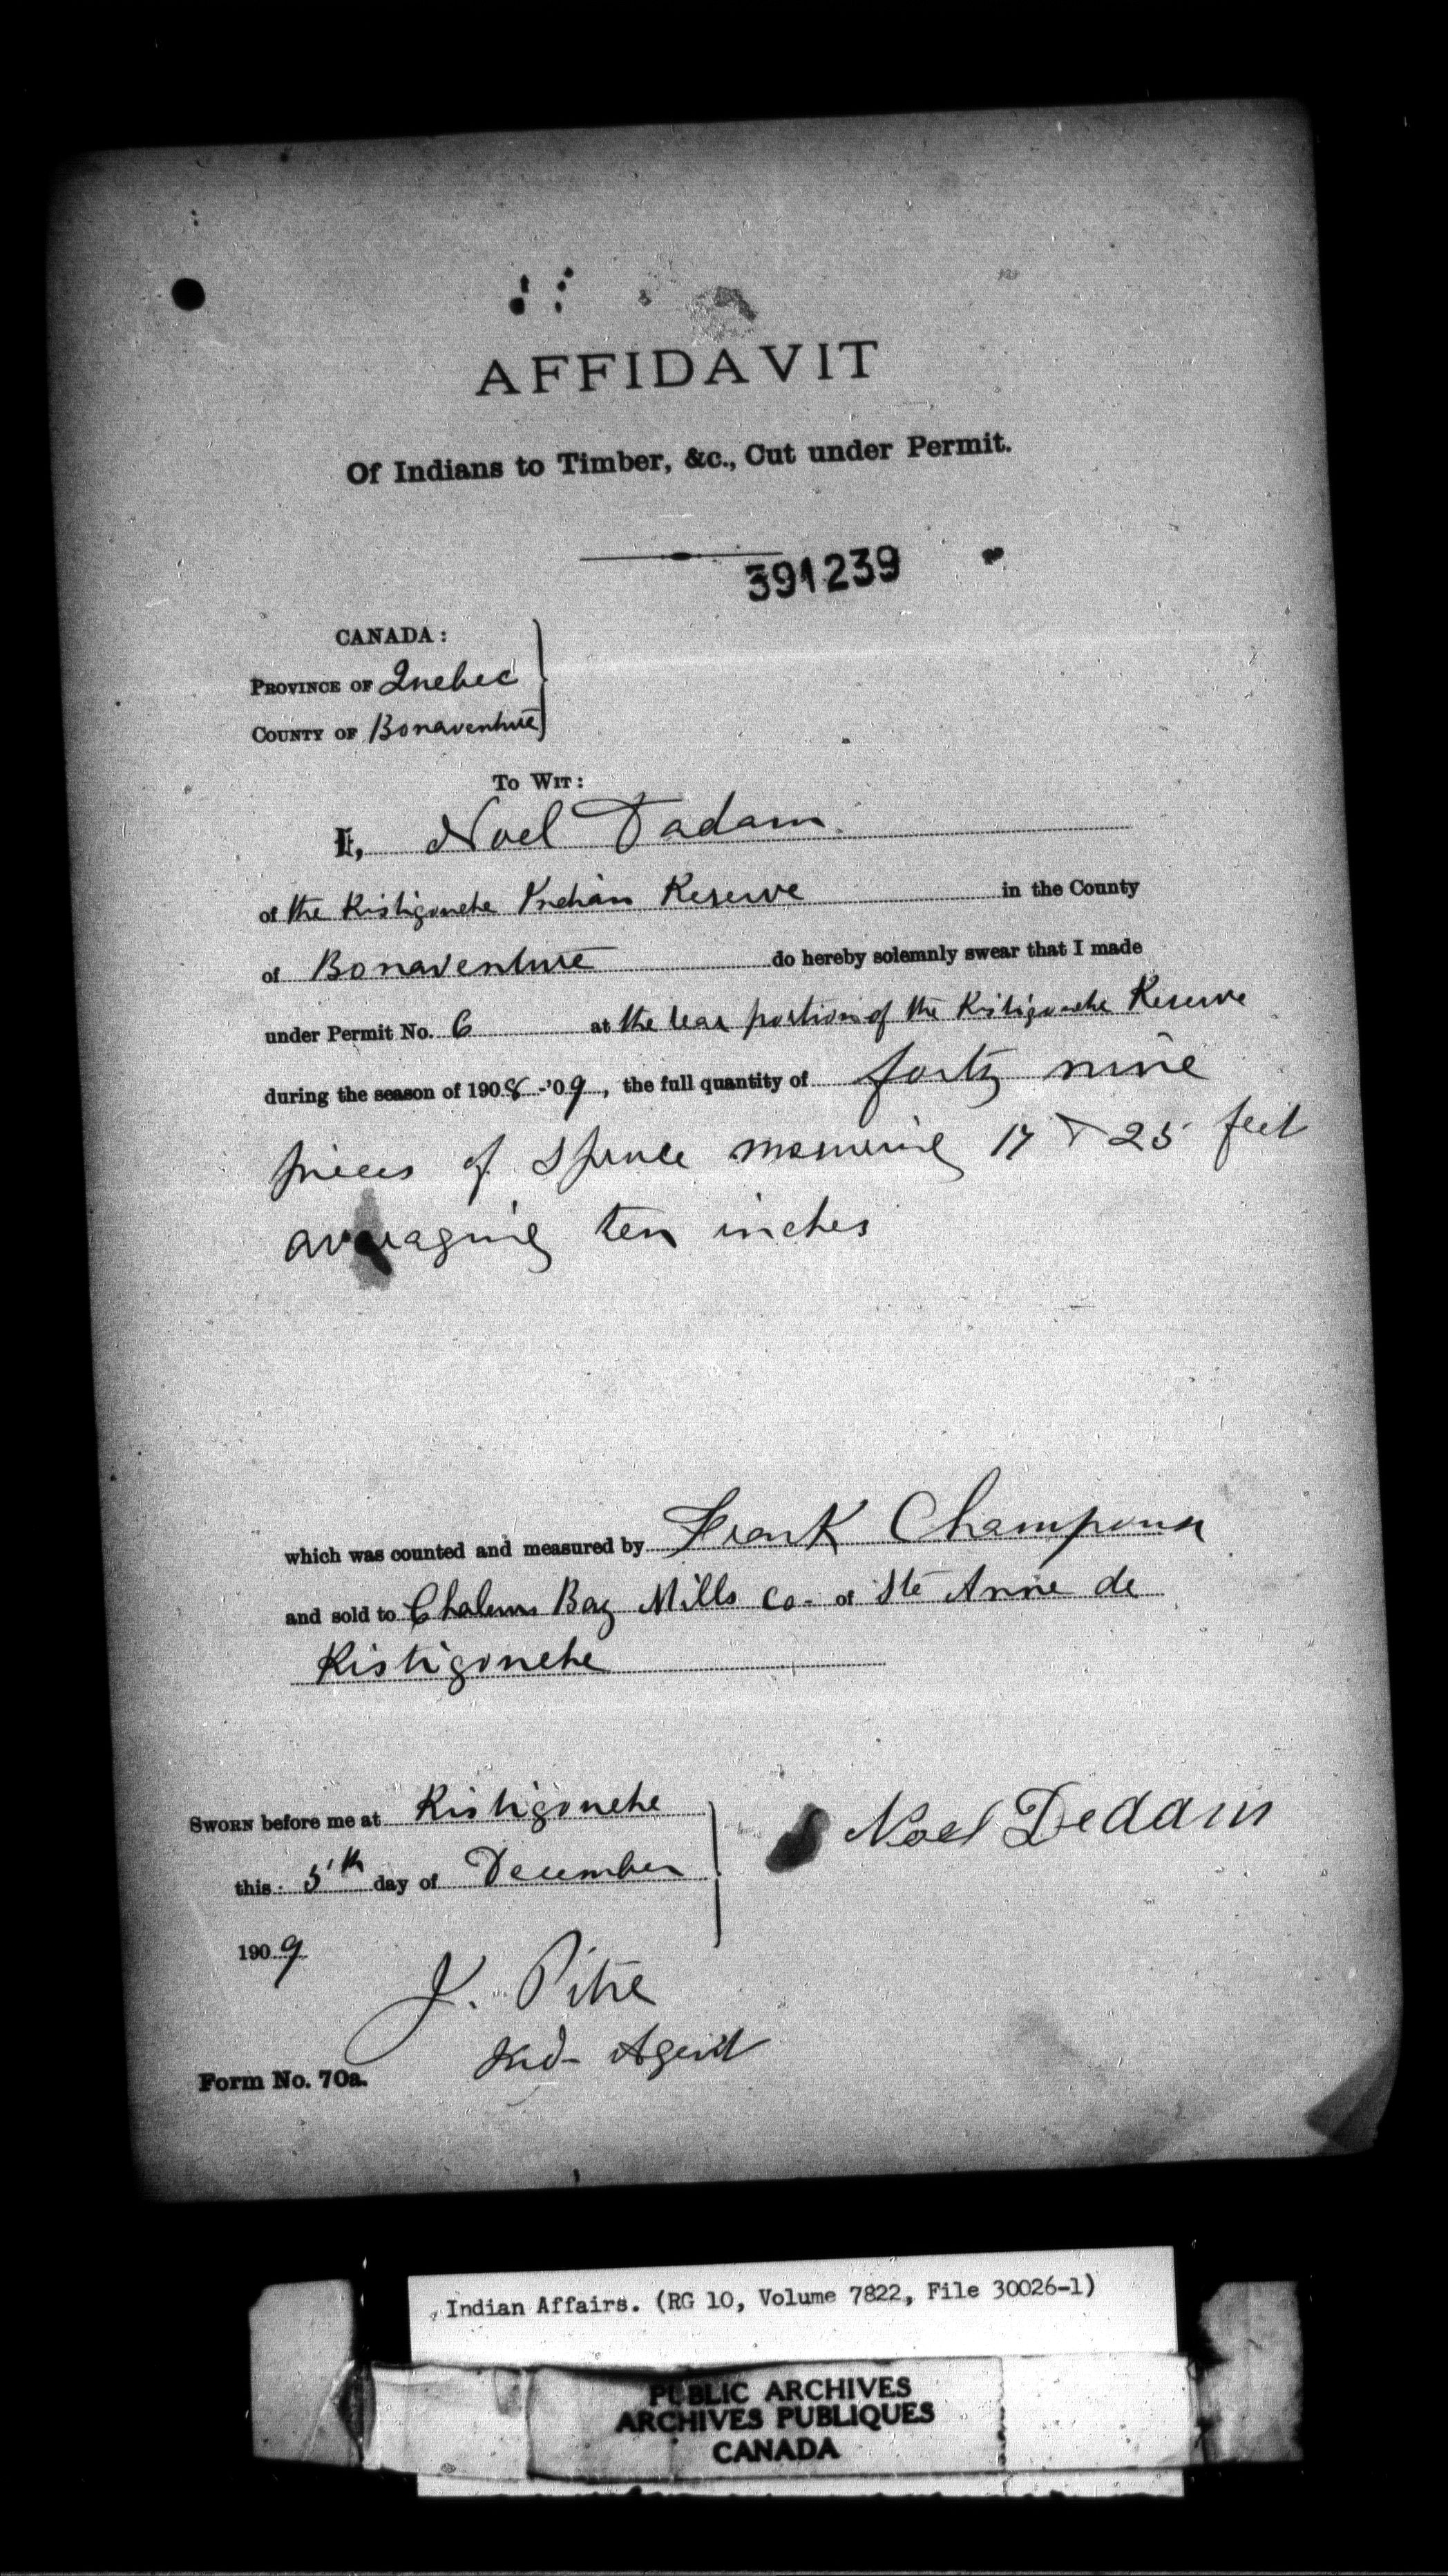 AFFIDAVIT
Of Indians to Timber, &c., Cut under Permit.
391239
CANADA:
PROVINCE OF Quebec
COUNTY OF Bonaventure
TO WIT:
I, Noel Dadam
of the Ristigouche Indian Reserve in the County
of Bonaventure do hereby solemnly swear that I made
under Permit No. 6 at the rear portion of the Ristigouche Reserve
during the season of 1908-'09, the full quantity of forty nine
pieces of Spruce measuring 17 & 25 feet
averaging ten inches
which was counted and measured by Frank Champoux
and sold to Chaleurs Bay Mills Co- of Ste Anne de
Ristigouche
SWORN before me at Ristigouche
this 5th day of December
1909
Noel Dedam
J. Pitre
Ind- Agent
Form No. 70a.
Indian Affairs. (RG 10, Volume 7822, File 30026-1)
PUBLIC ARCHIVES
ARCHIVES PUBLIQUES
CANADA